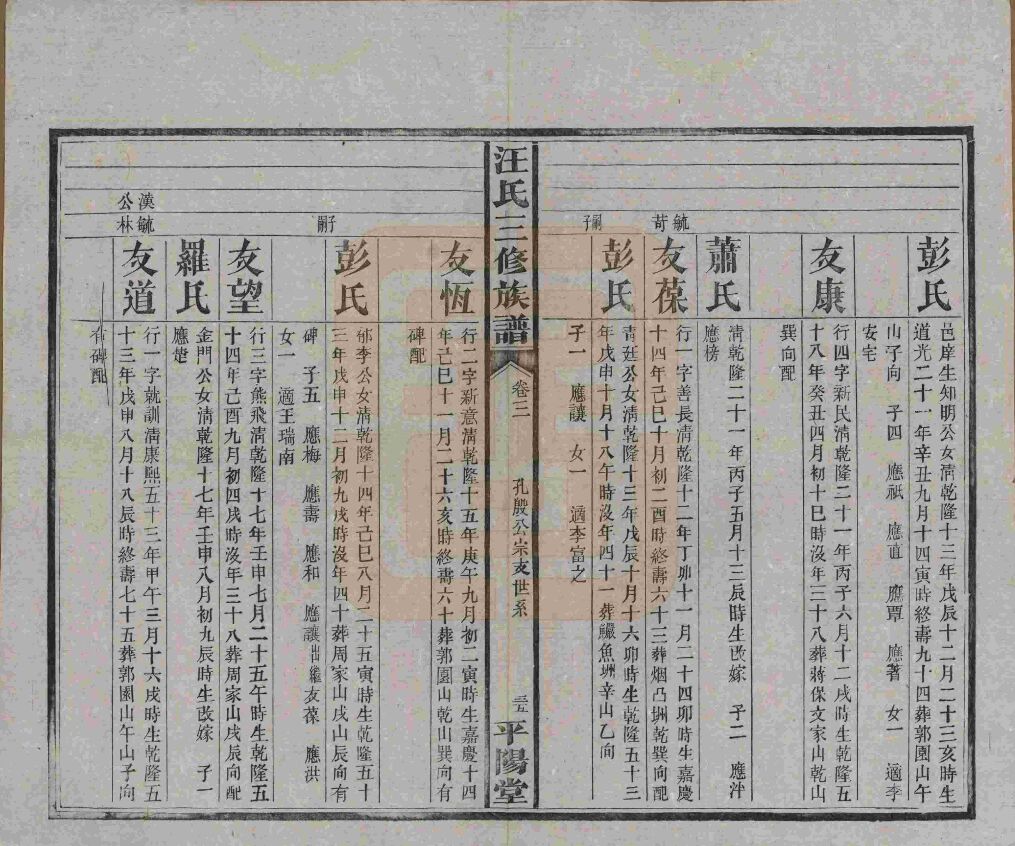 彭氏
邑庠生知明公女清乾隆十三年戊辰十二月二十三亥時生
道光二十一年辛丑九月十四寅時終壽九十四葬郭園山午
山子向　子四　應祇　應直　應覃　應著　女一　適李
安宅
友康
行四字新民清乾隆二十一年丙子六月十二戌時生乾隆五
十八年癸丑四月初十巳時沒年三十八葬蔣保文家山乾山
巽向配
蕭氏
清乾隆二十一年丙子五月十三辰時生改嫁　子二　應泮
應榜
毓苛
友葆
行一字善長清乾隆十二年丁卯十一月二十四卯時生嘉慶
十四年己巳十月初二酉時終壽六十三葬烟凸坳乾巽向配
嗣子
彭氏
青廷公女清乾隆十三年戊辰十月十六卯時生乾隆五十三
年戊申十月十八午時沒年四十一葬鱲魚坳辛山乙向
子一　應讓　女一　適李富之
汪氏三修族譜
卷三
孔殷公崇支世系
三五
平陽堂
友恆
行二字新意清乾隆十五年庚午九月初二寅時生嘉慶十四
年己巳十一月二十六亥時終壽六十葬郭園山乾山巽向有
碑配
子嗣
彭氏
郁李公女清乾隆十四年己巳八月二十五寅時生乾隆五十
三年戊申十二月初九戌時沒年四十葬周家山戌山辰向有
碑　子五　應梅　應壽　應和　應讓出繼友葆　應洪
女一　適王瑞南
友望
行三字熊飛清乾隆十七年壬申七月二十五午時生乾隆五
十四年己酉九月初四戌時沒年三十八葬周家山戌辰向配
羅氏
金門公女清乾隆十七年壬申八月初九辰時生改嫁　子一
應楚
漢公
毓林
友道
行一字就訓清康熙五十三年甲午三月十六戌時生乾隆五
十三年戊申八月十八辰時終壽七十五葬郭園山午山子向
有碑配